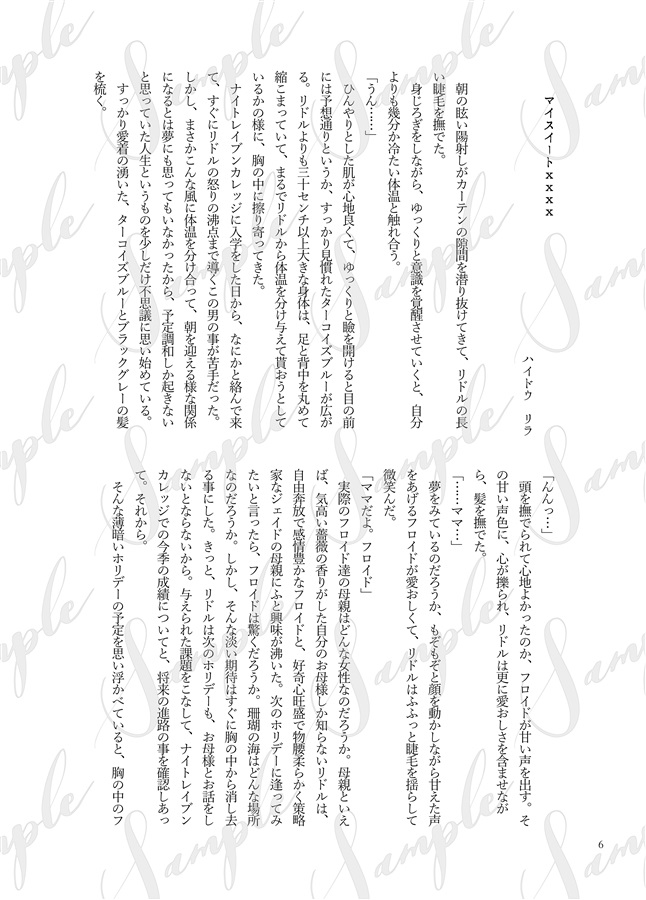 マイスイートxxxxx
ハイドウ　リラ
　朝の眩い陽射しがカーテンの隙間を潜り抜けてきて、リドルの長
い睫毛を撫でた。
　身じろぎをしながら、ゆっくりと意識を覚醒させていくと、自分
よりも幾分か冷たい体温と触れ合う。
「うん……」
　ひんやりとした肌が心地良くて、ゆっくりと瞼を開けると目の前
には予想通りというか、すっかり見慣れたターコイズブルーが広が
る。リドルよりも三十センチ以上大きな身体は、足と背中を丸めて
縮こまっていて、まるでリドルから体温を分け与えて貰おうとして
いるかの様に、胸の中に擦り寄ってきた。
　ナイトレイブンカレッジに入学をした日から、なにかと絡んで来
て、すぐにリドルの怒りの沸点まで導くこの男の事が苦手だった。
しかし、まさかこんな風に体温を分け合って、朝を迎える様な関係
になるとは夢にも思ってもいなかったから、予定調和しか起きない
と思っていた人生というものを少しだけ不思議に思い始めている。
　すっかり愛着の湧いた、ターコイズブルーとブラックグレーの髪
を梳く。
「んんっ…」
　頭を撫でられて心地よかったのか、フロイドが甘い声を出す。そ
の甘い声色に、心が擽られ、リドルは更に愛おしさを含ませなが
ら、髪を撫でた。
「……ママ…」
　夢をみているのだろうか、もぞもぞと顔を動かしながら甘えた声
をあげるフロイドが愛おしくて、リドルはふふっと睫毛を揺らして
微笑んだ。
「ママだよ。フロイド」
　実際のフロイド達の母親はどんな女性なのだろうか。母親といえ
ば、気高い薔薇の香りがした自分のお母様しか知らないリドルは、
自由奔放で感情豊かなフロイドと、好奇心旺盛で物腰柔らかく策略
家なジェイドの母親にふと興味が沸いた。次のホリデーに逢ってみ
たいと言ったら、フロイドは驚くだろうか。珊瑚の海はどんな場所
なのだろうか。しかし、そんな淡い期待はすぐに胸の中から消し去
る事にした。きっと、リドルは次のホリデーも、お母様とお話をし
ないとならないから。与えられた課題をこなして、ナイトレイブン
カレッジでの今季の成績についてと、将来の進路の事を確認しあっ
て。それから。
　そんな薄暗いホリデーの予定を思い浮かべていると、胸の中のフ
6
Sample